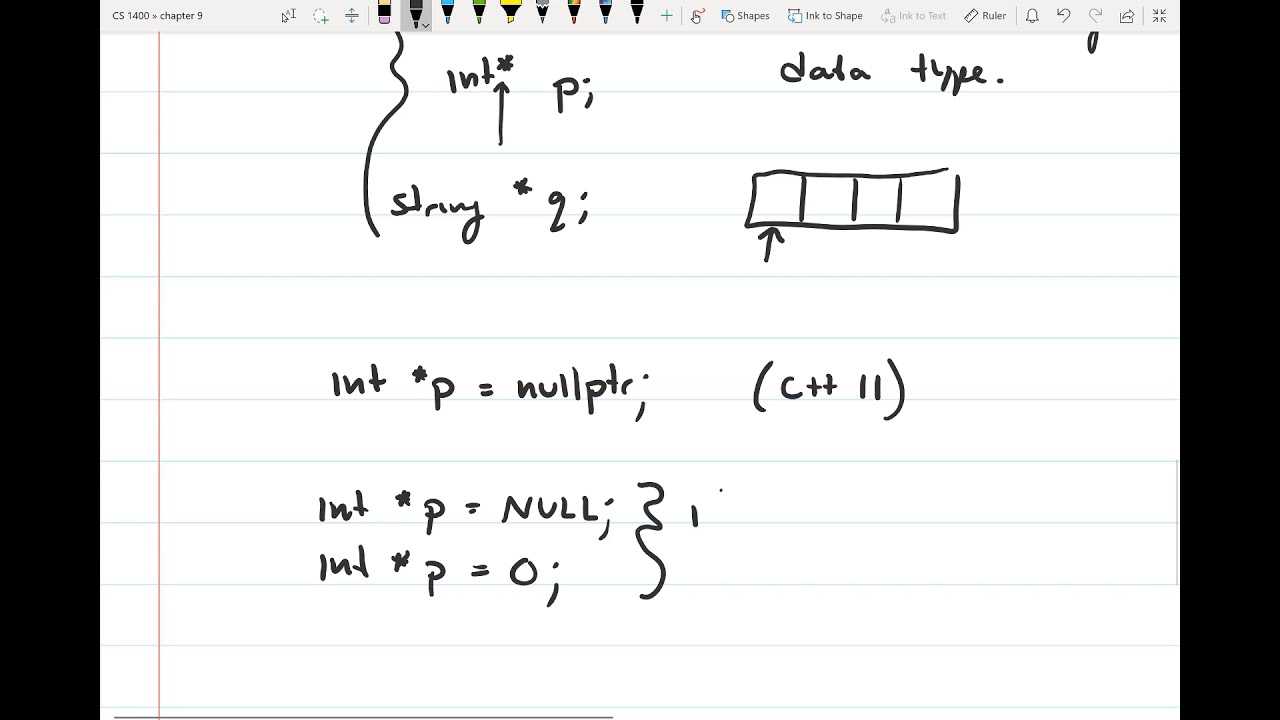 CS 1400 » chapter 9
Shapes Ink to Shape Ink to Text Ruler
int* p;
data type.
string * q;
int *p = nullptr; (C++ 11)
int *p = NULL;
int * p = 0;